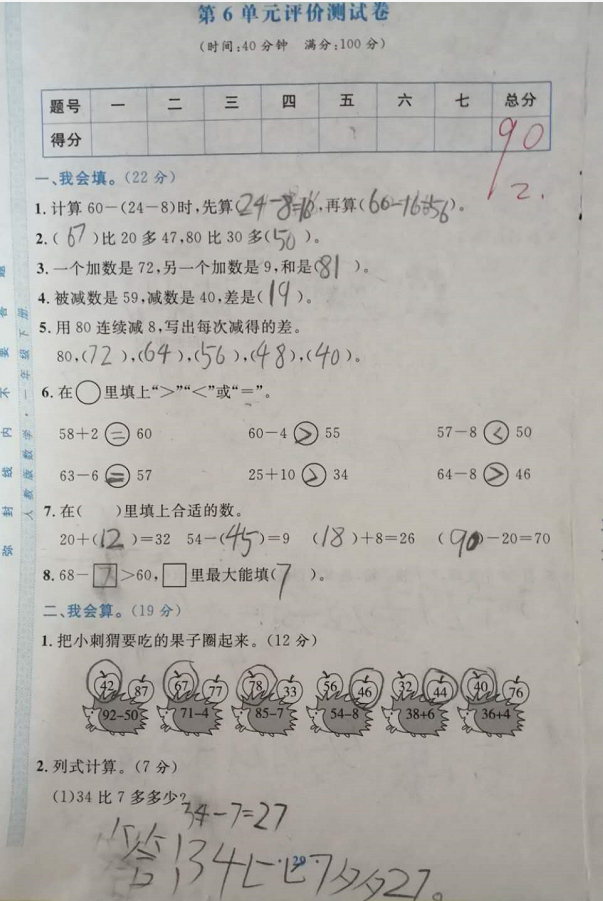 第6单元评价测试卷
(时间:40分钟 满分:100分)
题号 一 二 三 四 五 六 七 总分
得分 90
2.
一、我会填。(22分)
1.计算60-(24-8)时,先算(24-8=16),再算(60-16=56)。
2.(67)比20多47,80比30多(50)。
3.一个加数是72,另一个加数是9,和是(81)。
4.被减数是59,减数是40,差是(19)。
5.用80连续减8,写出每次减得的差。
80,(72),(64),(56),(48),(40)。
6.在○里填上“>”“<”或“=”。
58+2 = 60 60-4 > 55 57-8 < 50
63-6 = 57 25+10 > 34 64-8 > 46
7.在( )里填上合适的数。
20+(12)=32 54-(45)=9 (18)+8=26 (90)-20=70
8.68-7>60,□里最大能填(7)。
二、我会算。(19分)
1.把小刺猬要吃的果子圈起来。(12分)
42 87 67 77 78 33 56 46 32 44 40 76
92-50 71-4 85-7 54-8 38+6 36+4
2.列式计算。(7分)
(1)34比7多多少?
34-7=27
答:34比7多27。
29
人教版数学·一年级下册
弥封线内不要答题